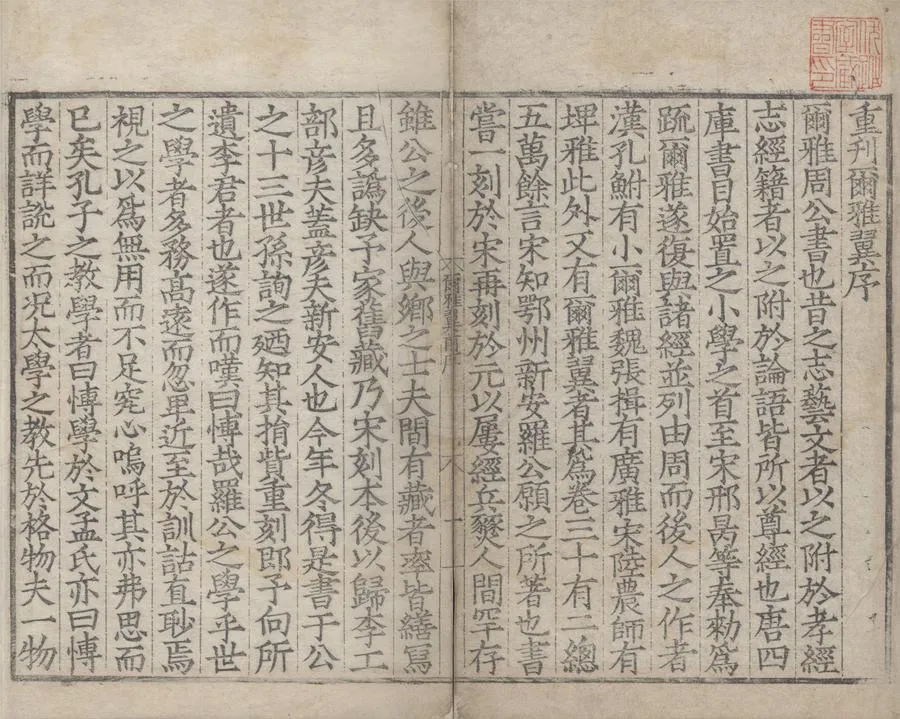 重刊爾雅翼序
爾雅周公書也昔之志藝文者以之附於孝經
志經籍者以之附於論語皆所以尊經也唐四
庫書目始置之小學之首至宋邢昺等奉勑爲
䟽爾雅遂復與諸經並列由周而後人之作者
漢孔鮒有小爾雅魏張揖有廣雅宋陸農師有
埤雅此外又有爾雅翼者其爲卷三十有二緫
五萬餘言宋知鄂州新安羅公願之所著也書
嘗一刻於宋再刻於元以屢經兵燹人間罕存
爾雅翼序
一
雖公之後人與鄉之士夫間有藏者率皆繕寫
且多譌缺予家舊藏乃宋刻本後以歸李工
部彦夫葢彦夫新安人也今年冬得是書于公
之十三世孫詢之廼知其捐貲重刻郎予向所
遺李君者也遂作而嘆曰愽哉羅公之學乎世
之學者多務高遠而忽卑近至於訓詁直耻焉
視之以爲無用而不足究心嗚呼其亦弗思而
已矣孔子之教學者曰愽學於文孟氏亦曰愽
學而詳說之而况太學之教先於格物夫一物